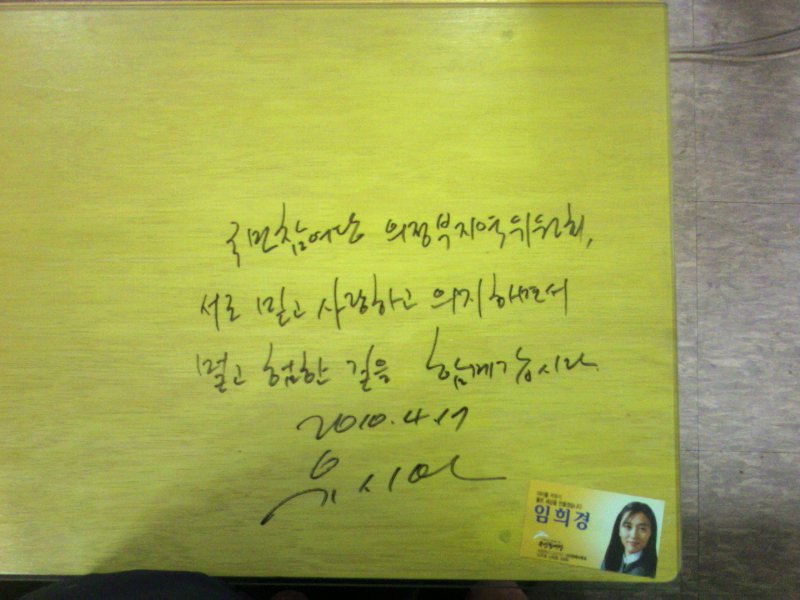 국민참여당 의정부지역위원회,
서로 믿고 사랑하고 의지하면서
멀고 험한 길을 함께갑시다.
2010.4.17
유시민
임희경